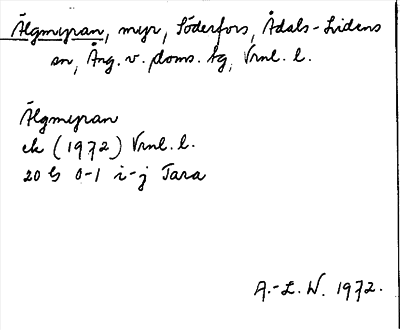 Älgmyran, myr, Söderfors, Ådals-Lidens
sn, Ång. v. doms. lg, Vrnl. l.
Älgmyran
ek (1972) Vrnl. l.
20 G 0-1 i-j Tara
A.-L. W. 1972.